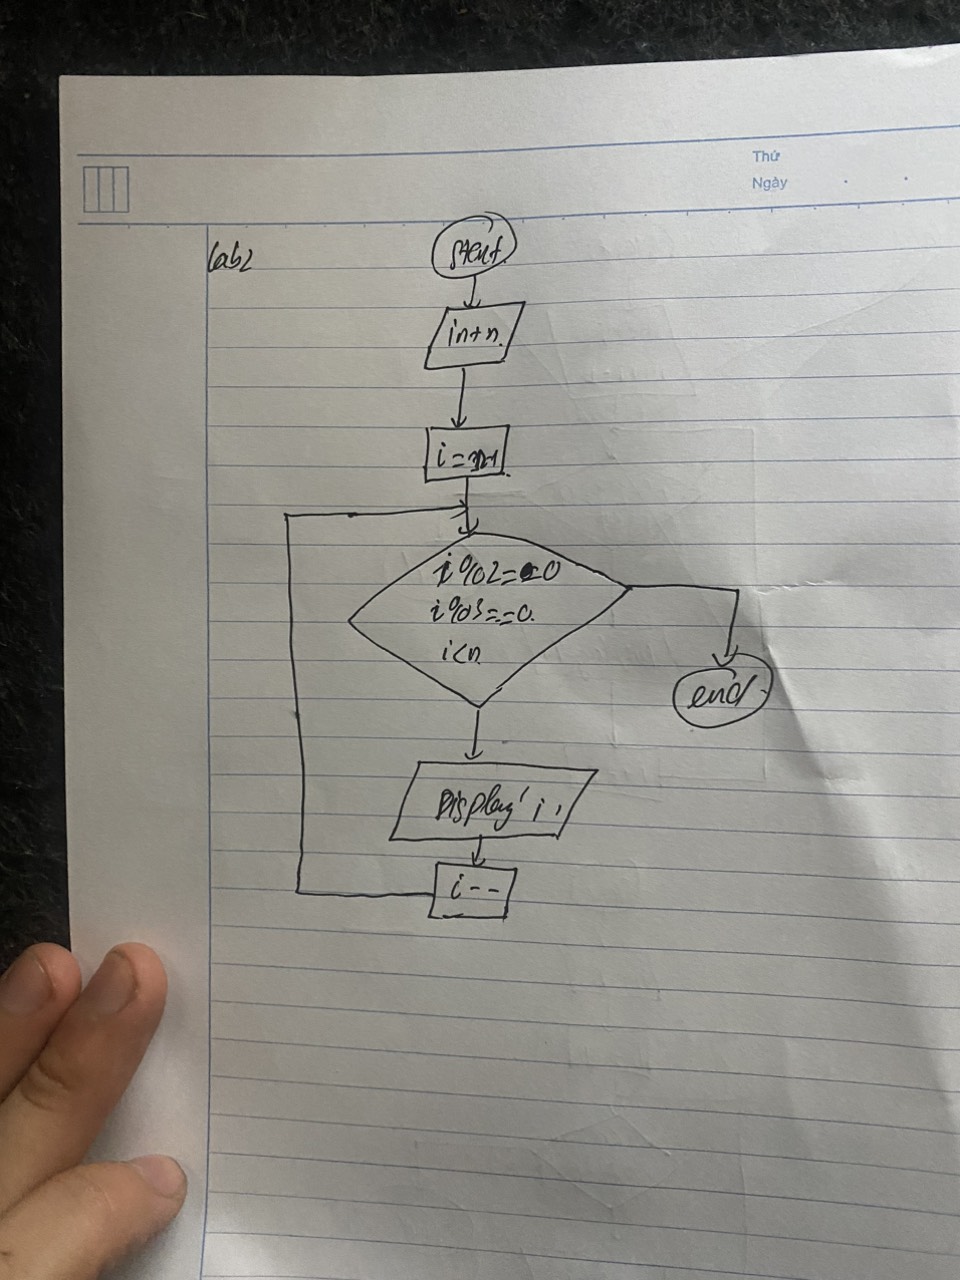 Thứ
Ngày
lab2
start
int n
i = n-1
i%2==0
i%3==0
i<n
end
Display' i '
i--